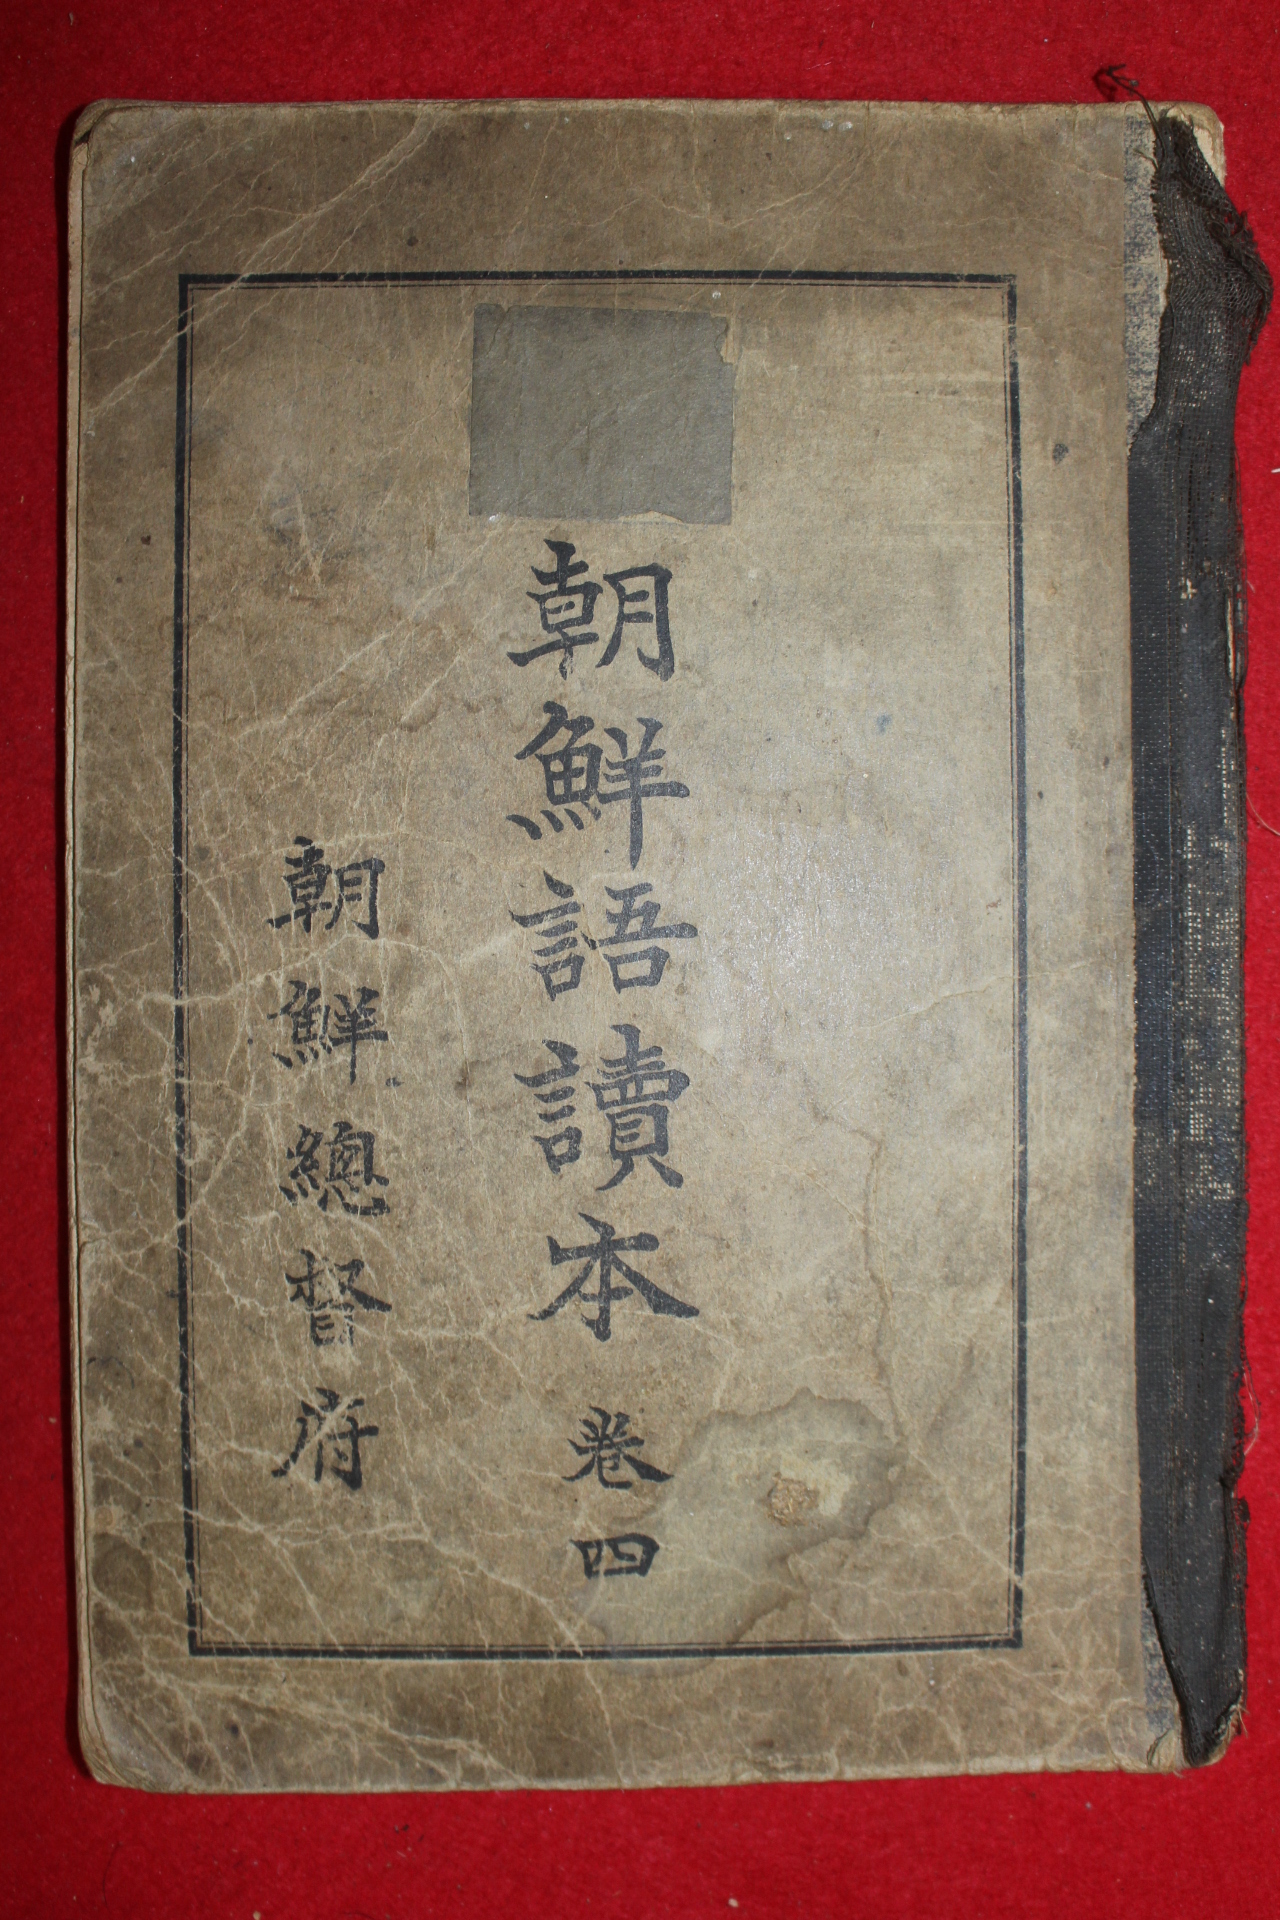 朝鮮語讀本 卷四
朝鮮總督府